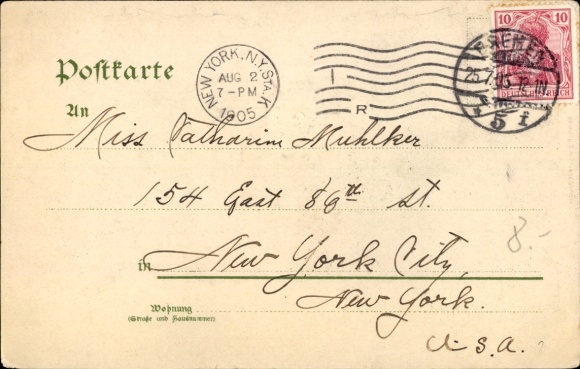 Postkarte
NEW YORK, N.Y. STA. K
AUG 2
7-PM
1905
I
R
10 10
DEUTSCHES REICH
BREMEN
25.7.05. 12-1N
* 5 f
An
Miss Catharine Muhlker
154 East 86th st.
in New York City,
New York.
U.S.A.
8.-
Wohnung
(Straße und Hausnummer)